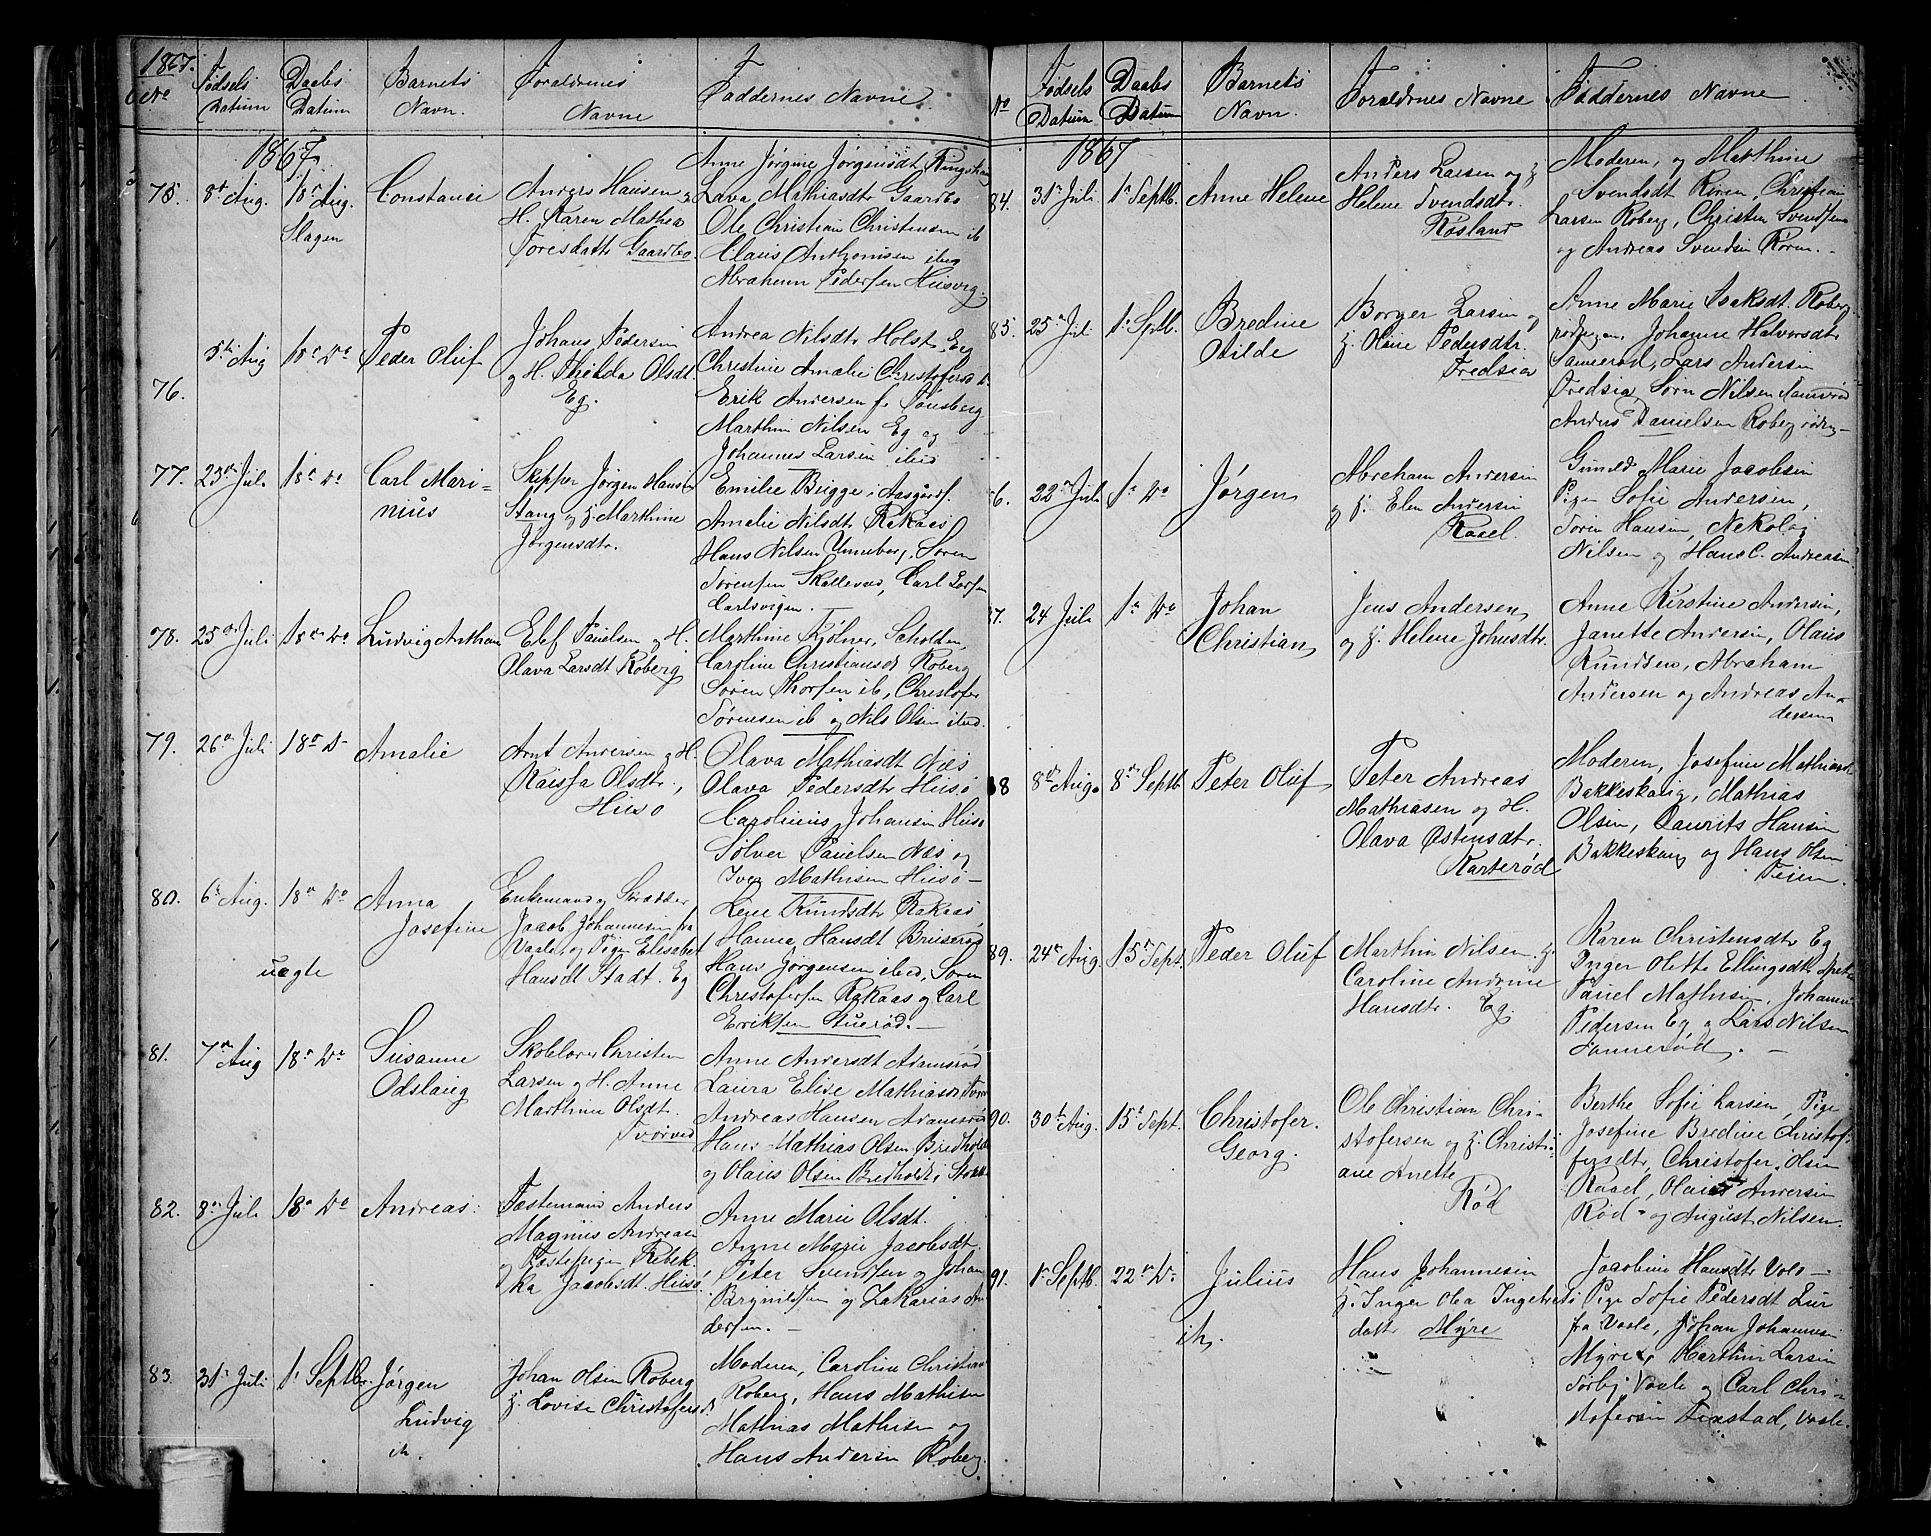 1867.
No
Fødsels Datum
Daabs Datum
Barnets Navn.
Foraldrenes Navne
Faddernes Navne.
1867.
75.
8de Aug.
18de Aug.
Slagen
Constansi
Anders Hansen og
H. Karen Mathea
Toresdattr Gaardbo.
Anne Jørgine Jørgensdt
Lava Mathiasdtr Gaardbo
Ole Christian Christensen ib
Claus Anthonisen ibid
Abraham Pedersen Husvig.
76.
5te Aug
18de Do
Peder Oluf
Johans Pedersen
og H. Thilda Olsdt
Eg.
Andrea Nilsdtr Holst, Eg
Christine Amalie Christofersd
Erik Andersen fr Tønsberg
Marthin Nilsen Eg og
Johannes Larsen ibid
77.
23de Juli
18de Do
Carl Mari-
nius
Skipper Jørgen Hansen
Stang og H. Marthine
Jørgensdtr.
Emilie Brigge i Aasgårds.
Amalie Nilsdtr Rakaas
Hans Nilsen Unneberg, Søren
Sørensen Skallevold, Carl Lars.
Carlsvigen.
78.
25de Juli
18de Do
Ludvig Anthon
Elef Paulsen og H.
Olava Larsdt Roberg
Marthine Kjølner,
Caroline Christiansd Roberg
Søren Thorsen ib, Christofer
Sørensen ib og Nils Olsen ibid.
79.
26de Juli
18de D
Amalie
Arnt Andersen og H.
Kaisa Olsdtr,
Husø
Olava Mathiasdt Næs
Olava Pedersdtr Husø
Carolinus Johansen Husø
Sølver Paulsen Næs og
Iver Mathisen Husø -
80.
6te Aug.
18de Do
uægte
Anna
Josefine
Enkemand og Skrædder
Jacob Johannesen fra
Vaale, og Pige Elisabet
Hansdt Stadt. Eg
Lene Knudsdtr Rakaas
Hanna Hansdt Bruserød
Hans Jørgensen ibid, Søren
Christofersen Rakaas og Carl
Eriksen Stuerød. -
81.
7de Aug
18de Do
Susanne
Odslaug
Skoelærer Christen
Larsen og H. Anne
Marthine Olsdt.
Tvørved
Anne Andersdt Adamsrød
Laura Elise Mathiasdt
Andreas Hansen Adamsrød
Hans Mathias Olsen Bredholdt
og Olaus Olsen Bredholdt i Stokke
82.
8de Juli
18de Do
Andreas
Fæstemand Anders
Magnus Andreasen
og Fæstepigen Rebek-
ka Jacobsdt Husø
Anne Marie Olsdt.
Anne Marie Jacobsdt
Peter Svendsen og Johan
Brynildsen og Zakarias An
dersen. -
83.
31te Juli
1te Septbr.
Jørgen
Ludvig
Johan Olsen Roberg
H. Lovise Christofersd
Moderen, Caroline Christian
Roberg, Hans Mathisen
Mathias Mathisen og
Hans Andersen Roberg
No
Fødsels Datum
Daabs Datum
Barnets Navn.
Foraldrenes Navne
Faddernes Navne
1867
84.
31te Juli
1te Septb.
Anne Helene
Anders Larsen og H
Helene Svendsdtr.
Røsland
Moderen, og Marthine
Svendsdt Røren, Christian
Larsen Roberg, Christen Svendsen
og Andreas Svendsen Røren. -
85.
25de Juli
1te Septb.
Bredine
Otilde
Borger Larsen og
H. Oline Pedersdtr.
Fredsia
Anne Marie Isaksdt. Roberg
rødningen, Johanne Halvorsdtr
Samerød, Lars Andersen
Fredsia, Søren Nilsen Samrød
Anders Danielsen Roberg rødn. -
6.
22de Juli
1te Do
Jørgen
Abraham Andersen
og H. Elen Andersen
Raael.
Gunild Marie Jacobsen
Pige Sofie Andersen,
Søren Hansen, Nekolaj
Nilsen og Hans C. Andreasen.
7.
24 Juli
1te Do
Johan
Christian
Jens Andersen
og H. Helene Johnsdtr.
Anne Kirstine Andersen,
Janette Andersen, Olaus
Knudsen, Abraham
Andersen og Andreas An-
dersen
88
8de Aug.
8de Septb.
Peter Oluf
Peter Andreas
Mathiasen og H.
Olava Østensdtr.
Karterød
Moderen, Josefine Mathiasdt
Bakkeskaug, Mathias
Olsen, Laurits Hansen
Bakkeskaug og Hans Olsen
Teien.
89.
24de Aug.
15de Sept.
Peder Oluf
Marthin Nilsen. H.
Caroline Andrine
Hansdtr. Eg.
Karen Christensdtr Eg
Inger Olette Ellingsdtr
Paul Mathisen, Johannes
Pedersen Eg og Lars Nilsen
Sannerød. -
90.
30te Aug.
15de Sept.
Christofer
Georg.
Ole Christian Chri-
stofersen og H. Christi-
ane Anette
Rød
Berthe Sofie Larsen, Pige
Josefine Bredine Christof-
fersdtr, Christofer Olsen
Raael, Olaus Andersen
Rød - og August Nilsen.
91.
1te Septb.
22de Do
Julius
Hans Johannesen
H. Inger Olea Ingebrets
dattr Myre
Jacobine Hansdtr Vole -
Pige Sofie Pedersdt Lur
fra Vaale, Johan Johannesen
Myre, Marthin Larsen
Sørby Vaale og Carl Chri-
stofersen Finstad, Vaale.